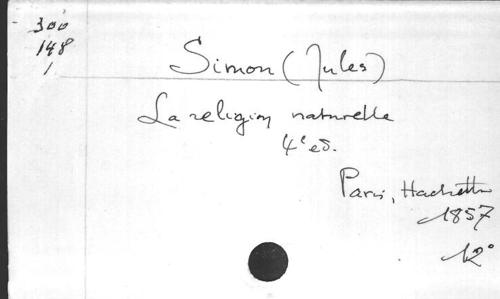 300
148
1
Simon (Jules)
La religion naturelle
4e ed.
Paris, Hachette
1857
12°